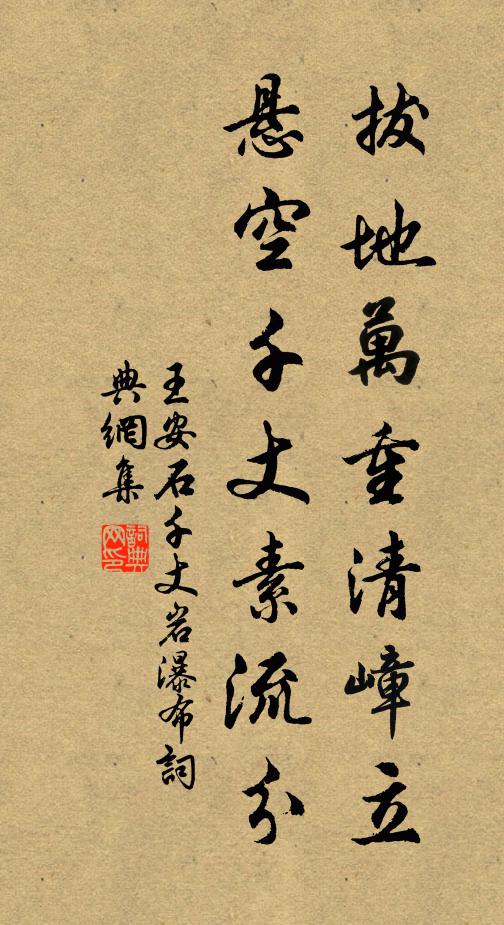 拔地萬重清嶂立
懸空千丈素流分
王安石千丈岩瀑布詞
典網集
詞典網印